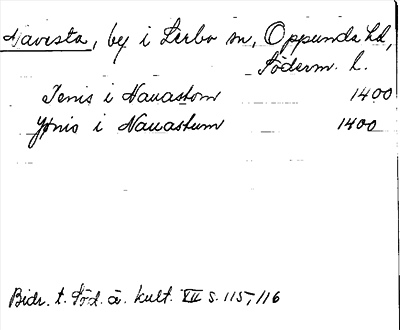 Navesta, by i Lerbo sn, Oppunda hd,
Söderm. l.
Jenis i Nauastom 1400
Yӧnis i Nauastum 1400
Bidr. t. Söd. ä. kult. VII s. 115, 116